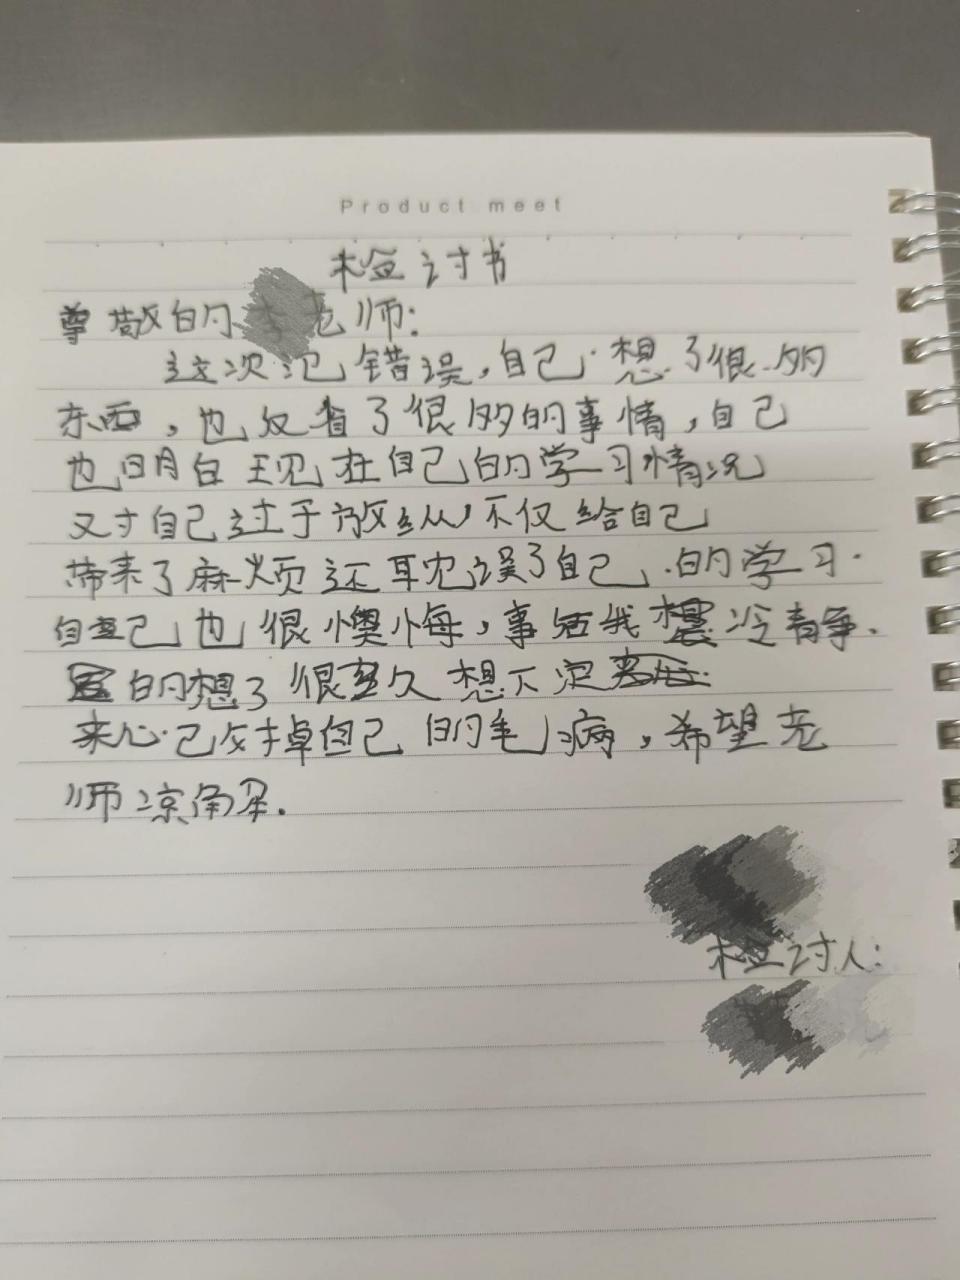 Product meet
检讨书
尊敬的 老师:
这次犯错误,自己想了很多
东西,也反省了很多的事情,自己
也明白现在自己的学习情况
对自己过于放纵,不仅给自己
带来了麻烦还耽误了自己的学习.
自己也很懊悔,事后我想冷静.
的想了很久想下定
来心己改掉自己的毛病,希望老
师谅解.
检讨人: